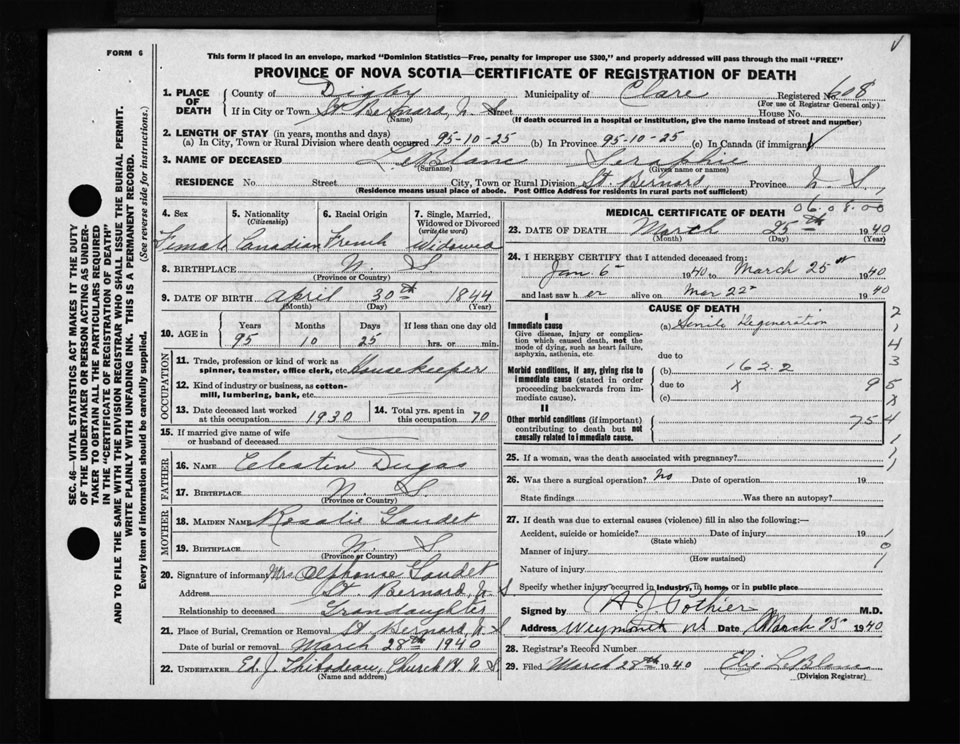 FORM 6
This form if placed in an envelope, marked "Dominion Statistics—Free, penalty for improper use $300," and properly addressed will pass through the mail "FREE"
PROVINCE OF NOVA SCOTIA—CERTIFICATE OF REGISTRATION OF DEATH
SEC. 46—VITAL STATISTICS ACT MAKES IT THE DUTY
OF THE UNDERTAKER OR PERSON ACTING AS UNDER-
TAKER TO OBTAIN ALL THE PARTICULARS REQUIRED
IN THE "CERTIFICATE OF REGISTRATION OF DEATH"
AND TO FILE THE SAME WITH THE DIVISION REGISTRAR WHO SHALL ISSUE THE BURIAL PERMIT.
WRITE PLAINLY WITH UNFADING INK. THIS IS A PERMANENT RECORD.
Every item of information should be carefully supplied. (See reverse side for instructions.)
1. PLACE OF DEATH
County of Digby Municipality of Clare Registered No. 608
(For use of Registrar General only)
If in City or Town St. Bernard, N. S Street House No.
(Name) (If death occurred in a hospital or institution, give the name instead of street and number)
2. LENGTH OF STAY (in years, months and days)
(a) In City, Town or Rural Division where death occurred 95-10-25 (b) In Province 95-10-25 (c) In Canada (if immigrant)
3. NAME OF DECEASED LeBlanc Seraphie
(Surname) (Given name or names)
RESIDENCE No. Street City, Town or Rural Division St. Bernard, Province N. S.,
(Residence means usual place of abode. Post Office Address for residents in rural parts not sufficient)
06.08.00
4. Sex Female
5. Nationality (Citizenship) Canadian
6. Racial Origin French
7. Single, Married, Widowed or Divorced (write the word) Widowed
8. BIRTHPLACE N. S
(Province or Country)
9. DATE OF BIRTH April 30th 1844
(Month) (Day) (Year)
10. AGE in Years Months Days If less than one day old
95 10 25 hrs. or min.
OCCUPATION
11. Trade, profession or kind of work as spinner, teamster, office clerk, etc. Housekeeper
12. Kind of industry or business, as cotton-mill, lumbering, bank, etc.
13. Date deceased last worked at this occupation 1930 14. Total yrs. spent in this occupation 70
15. If married give name of wife or husband of deceased
FATHER
16. NAME Celestin Dugas
17. BIRTHPLACE N. S.
(Province or Country)
MOTHER
18. MAIDEN NAME Rosalie Gaudet
19. BIRTHPLACE N. S
(Province or Country)
20. Signature of informant Mrs Alphonse Gaudet
Address St. Bernard, N. S
Relationship to deceased Grandaughter
21. Place of Burial, Cremation or Removal St Bernard, N. S
Date of burial or removal March 28th 1940
22. UNDERTAKER Ed. J. Thibodeau, Church Pt. N. S
(Name and address)
MEDICAL CERTIFICATE OF DEATH
23. DATE OF DEATH March 25th 1940
(Month) (Day) (Year)
24. I HEREBY CERTIFY that I attended deceased from:
Jan. 6 1940 to March 25th 1940
and last saw her alive on Mar 22 1940
CAUSE OF DEATH
I
Immediate cause (a) Senile degeneration
Give disease, injury or complication which caused death, not the mode of dying, such as heart failure, asphyxia, asthenia, etc.
due to
Morbid conditions, if any, giving rise to immediate cause (stated in order proceeding backwards from immediate cause).
(b) 162.2
due to x
(c)
II
Other morbid conditions (if important) contributing to death but not causally related to immediate cause.
754
25. If a woman, was the death associated with pregnancy?
26. Was there a surgical operation? No Date of operation 19
State findings Was there an autopsy?
27. If death was due to external causes (violence) fill in also the following:—
Accident, suicide or homicide? Date of injury 19
(State which)
Manner of injury
(How sustained)
Nature of injury
Specify whether injury occurred in industry, in home, or in public place
Signed by A J Pothier M.D.
Address Weymouth NS Date March 25 1940
28. Registrar's Record Number
29. Filed March 28th 1940 Elie LeBlanc
(Division Registrar)